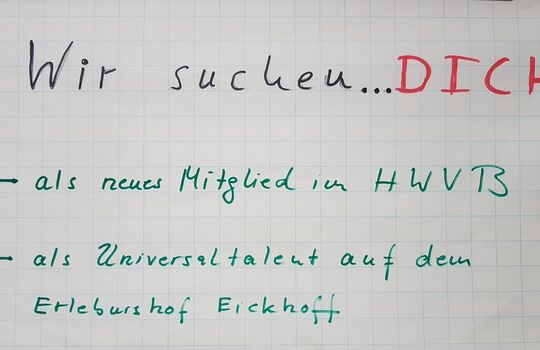 Wir suchen...DICH
→ als neues Mitglied im HWVB
→ als Universaltalent auf dem
Erlebnishof Eickhoff